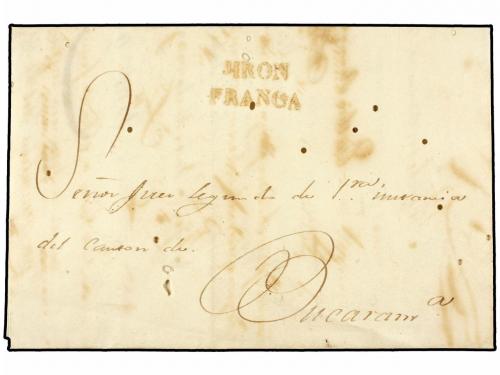 JIRON
FRANCA
Señor Juez segundo de 1ra. instancia
del canton de.
Bucaramª